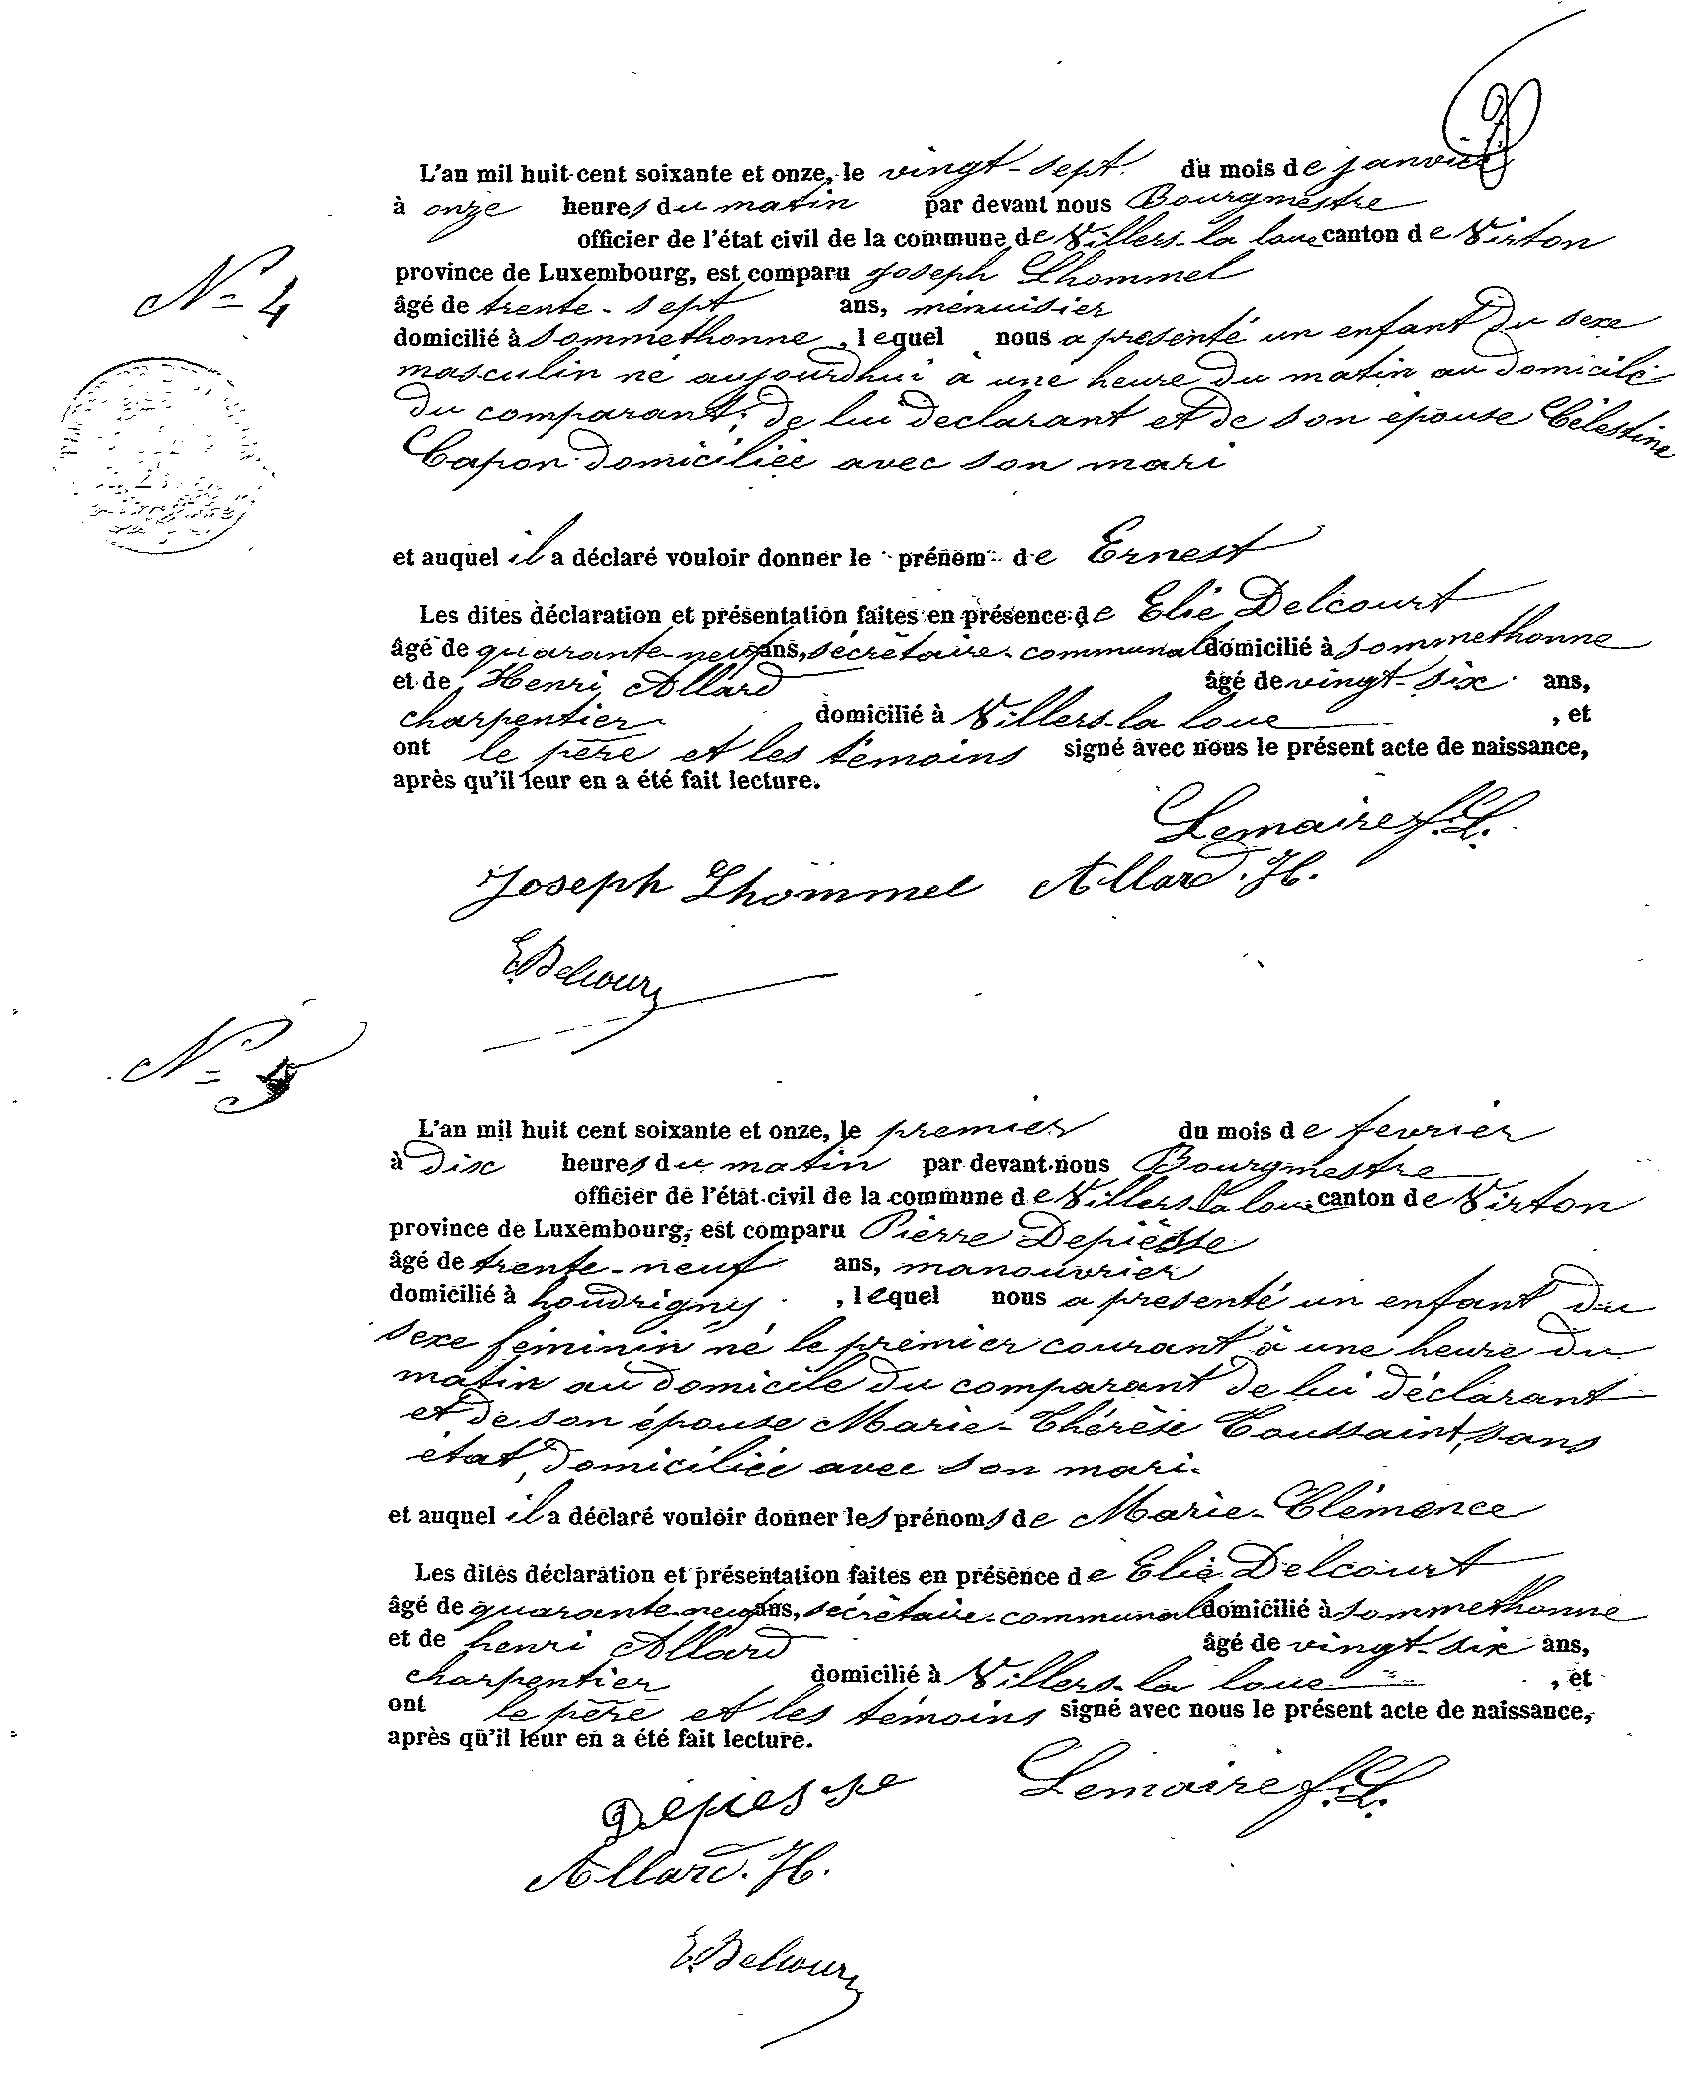 L'an mil huit cent soixante et onze, le vingt-sept du mois de janvier
à onze heures du matin par devant nous Bourgmestre
officier de l'état civil de la commune de Villers-la loue canton de Virton
province de Luxembourg, est comparu Joseph Lhommel
N= 4
âgé de trente-sept ans, menuisier
domicilié à Sommethonne, lequel nous a presenté un enfant du sexe
masculin né aujourdhui à une heure du matin au domicile
du comparant, de lui declarant et de son épouse Célestine
Capon domiciliée avec son mari
et auquel il a déclaré vouloir donner le prénom de Ernest
Les dites déclaration et présentation faites en présence de Elie Delcourt
âgé de quarante-neuf ans, sécrétaire-communal domicilié à Sommethonne
et de Henri Allard âgé de vingt-six ans,
charpentier domicilié à Villers-la loue, et
ont le père et les témoins signé avec nous le présent acte de naissance,
après qu'il leur en a été fait lecture.
Lemaire f.L.
Joseph Lhommel Allard. H.
E. Delcour
N= 5
L'an mil huit cent soixante et onze, le premier du mois de fevrier
à dix heures du matin par devant nous Bourgmestre
officier de l'état civil de la commune de Villers la loue canton de Virton
province de Luxembourg, est comparu Pierre Depiesse
âgé de trente-neuf ans, manouvrier
domicilié à houdrigny, lequel nous a presenté un enfant du
sexe féminin né le premier courant à une heure du
matin au domicile du comparant de lui déclarant
et de son épouse Marie-Thérèse Toussaint, sans
état, domiciliée avec son mari.
et auquel il a déclaré vouloir donner les prénoms de Marie-Clémence
Les dites déclaration et présentation faites en présence de Elie Delcourt
âgé de quarante-neuf ans, sécrétaire-communal domicilié à Sommethonne
et de henri Allard âgé de vingt-six ans,
charpentier domicilié à Villers-la loue, et
ont le père et les témoins signé avec nous le présent acte de naissance,
après qu'il leur en a été fait lecture.
Depiesse Lemaire f.L.
Allard. H.
E. Delcour